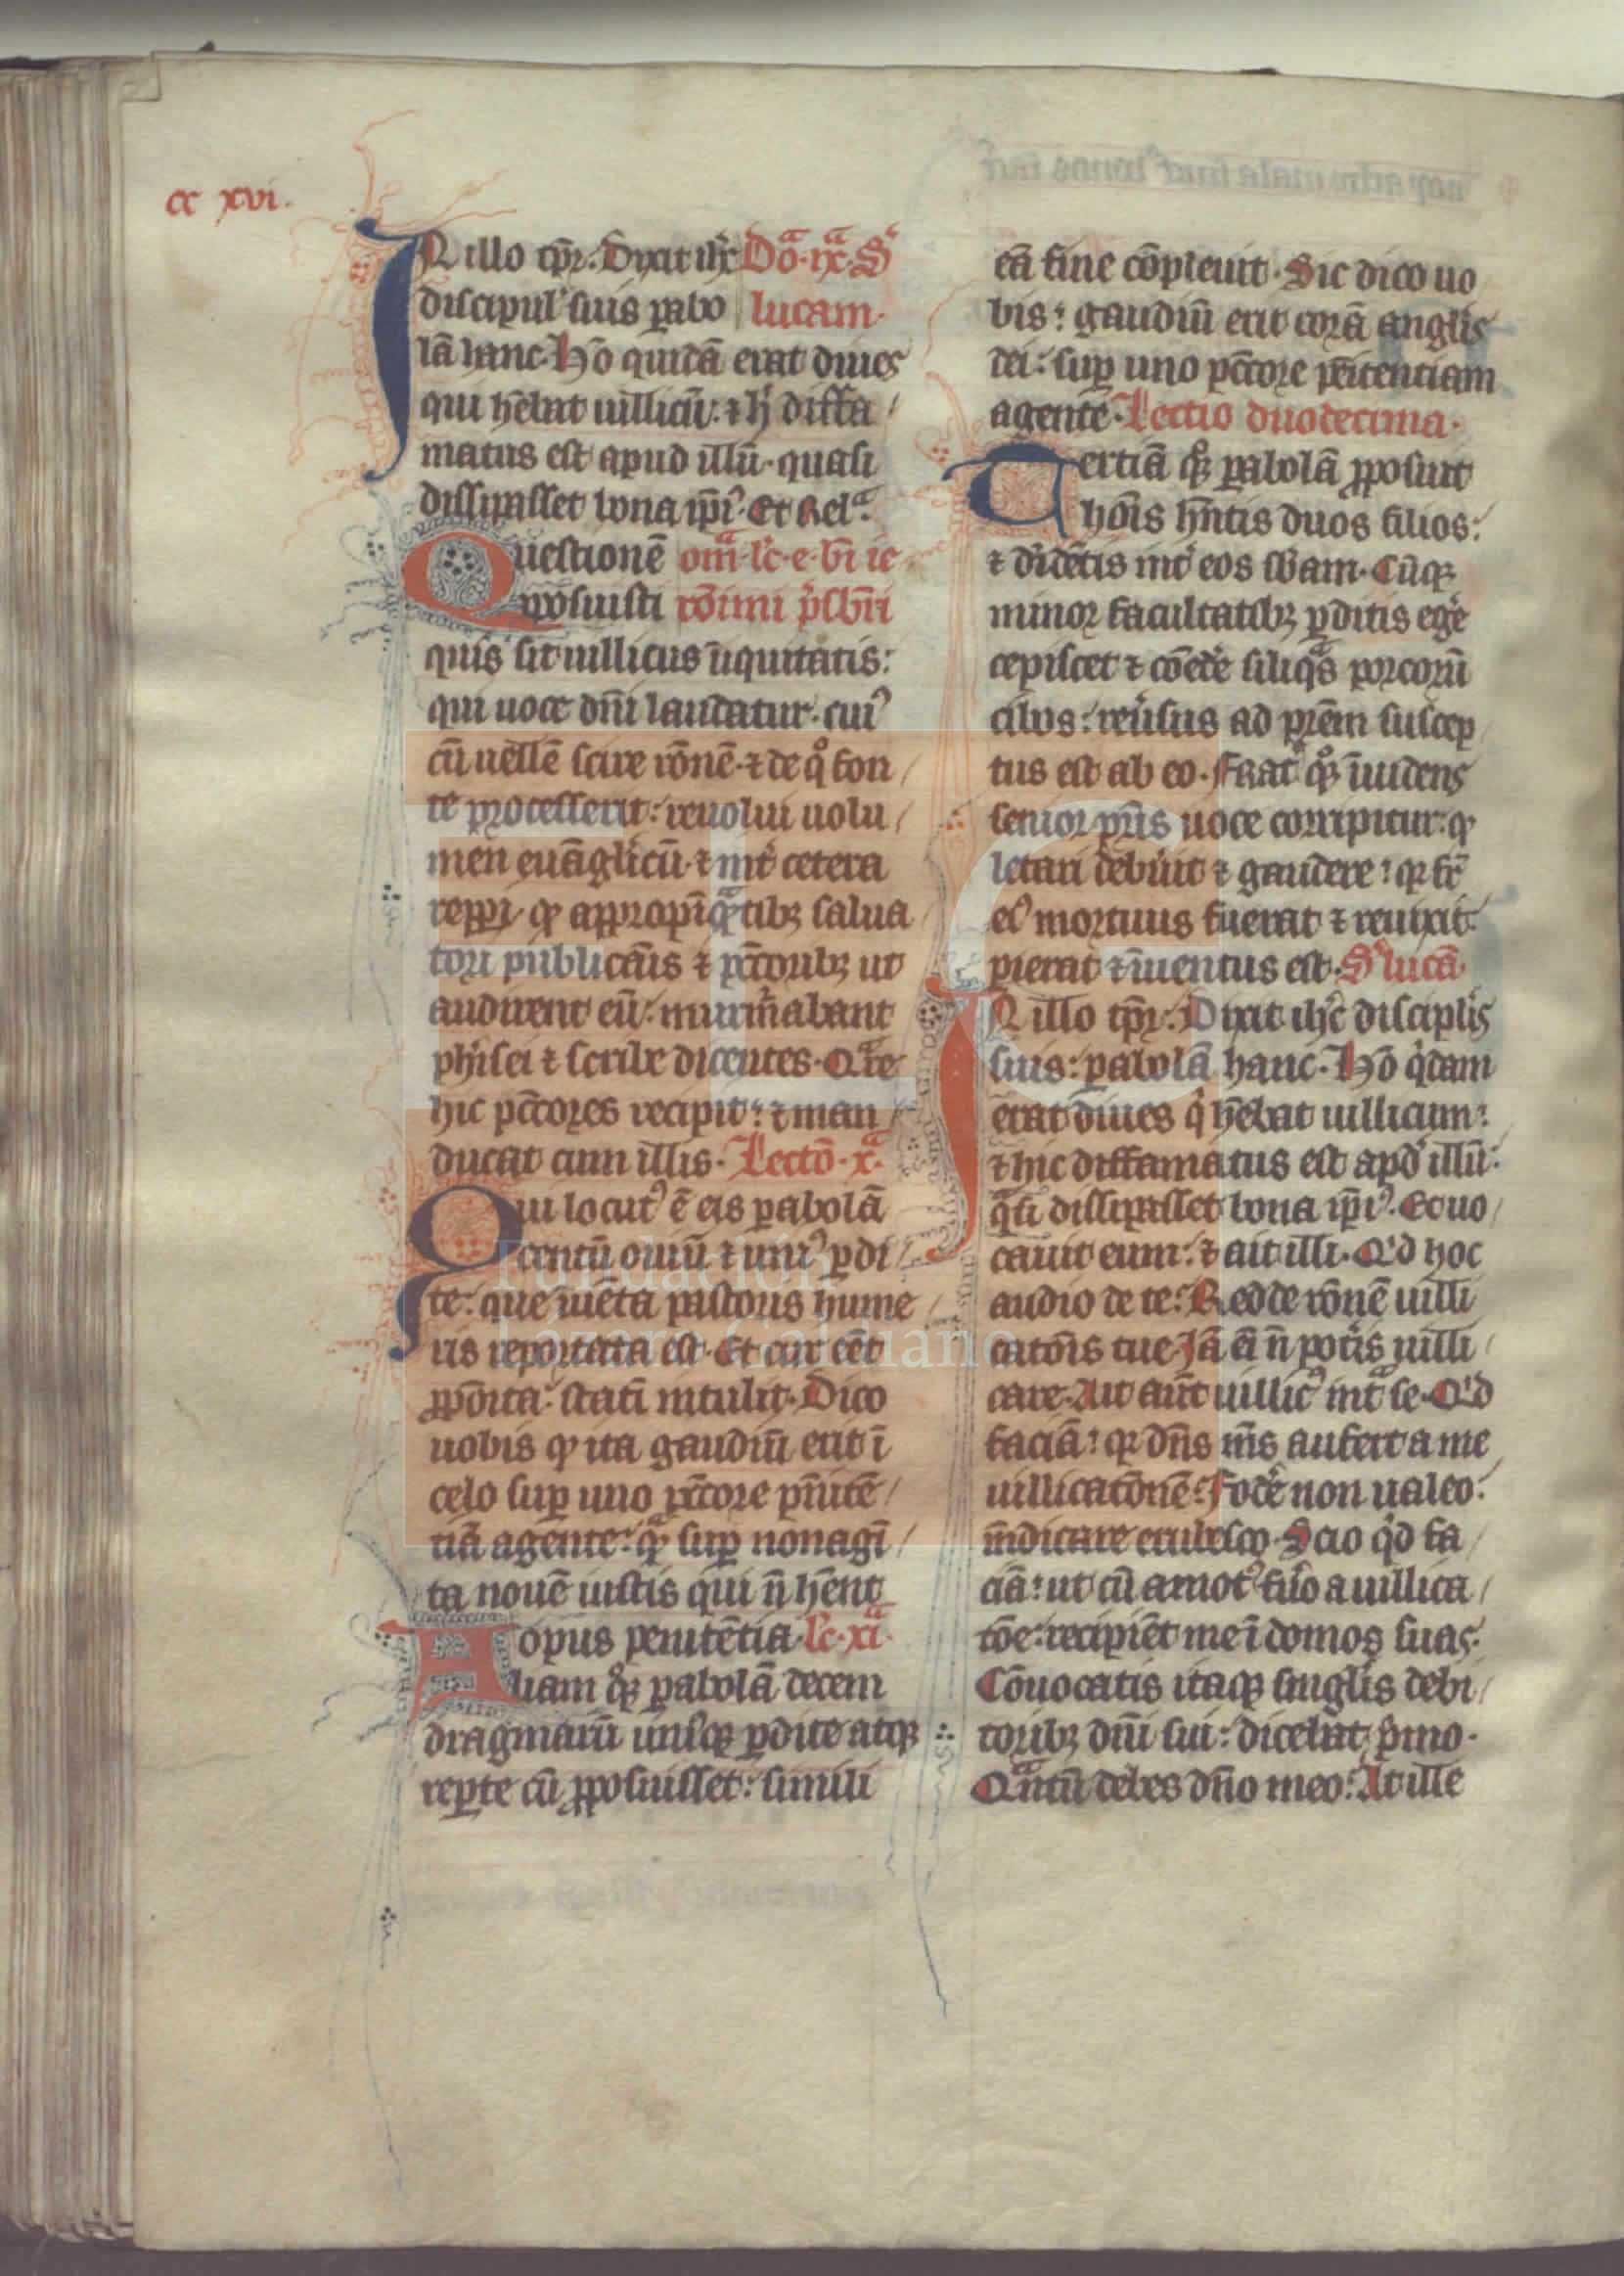 cc xvi.
IN illo tp̄r. Dixit ih̄c Dō. ix. S
discipul' suis pabo lucam.
lā hanc. Hō quidā erat diues
qui hēbat uillicū. ⁊ h̓ diffa
matus est apud illū. quasi
dissipasset bona ip̄i'. Et Rel'ª.
Questionē om̄ lc̄. e. bī ie
pposuisti rōimi p̄sbri
quis sit uillicus īiquitatis:
qui uoce dn̄i laudatur. cui'
cū uellē scire rōnē. ⁊ de qͦ fon
te processerit: reuolui uolu
men euāglicū. ⁊ int̓ cetera
repperi qp appropīqªtibꝫ salua
tori publicāis ⁊ pc̄toribꝫ ut
audirent eū: murm̄abant
phisei ⁊ scribe dicentes. Qªre
hic pc̄tores recipit: ⁊ man
ducat cum illis. Lectō. xª.
Qui locut' ē eis pabolā
centū ouiū ⁊ uni' pdi
te: que īuēta pastoris hume
ris reportata est. Et cur eēt
pposita: statī intulit. Dico
uobis qp ita gaudiū erit ī
celo sup uno pc̄tore pn̄itē
tiā agente: qªꝫ sup nonagī
ta nouē iustis qui n̄ hēnt
opus penitētia. lc̄. xiª.
Aliam qͦꝫ pabolā decem
dragmarū uni'qꝫ pdite atqꝫ
repte cū pposuisset: simili
eā fine cōpleuit. Sic dico uo
bis: gaudiū erit corā anglis
dei: sup uno pc̄tore pēitentiam
agentē. Lectio duodecima.
Tertiā qͦꝫ pabolā pposuit
hoīs hn̄tis duos filios:
⁊ diuidētis int̓ eos sbam. Cūqꝫ
minor facultatibꝫ pditis ege̓
cepisset ⁊ cōede̓ siliqªs porcorū
cibos: reu̓sus ad prēm suscep
tus est ab eo. Frat̓ qͦꝫ īuidens
senior pr̄is uoce corripitur: qp
letari debūit ⁊ gaudere: qr fr̄
ei' mortuus fuerat ⁊ reuixit.
pierat ⁊ īuentus est. S lucā.
IN illo tp̄r. Dixit ih̄c discipl̓is
suis: pabolā hanc. Hō qͥdam
erat diues qͥ hēbat uillicum:
⁊ hic diffamatus est apd' illū:
qªsi dissipasset bona ip̄i'. Et uo
cauit eum: ⁊ ait illi. Qͥd hoc
audio de te: Redde rōnē uilli
catōis tue. Jā ei n̄ pot̓is uilli
care. Ait aūt uillic' intª se. Qͥd
faciā: qr dn̄s m̄s aufert a me
uillicatōnē: Fode̓ non ualeo:
m̄dicare erubesco. Scio qͥd fa
ciā: ut cū amot' fu̓o a uillica
tōe: recipiēt me ī domos suas.
Cōuocatis itaqꝫ singl̓is debi
toribꝫ dn̄i sui: dicebat pͥmo.
Qªntū debes dn̄o meo: At ille
FLG
Fundación
Lázaro Galdiano